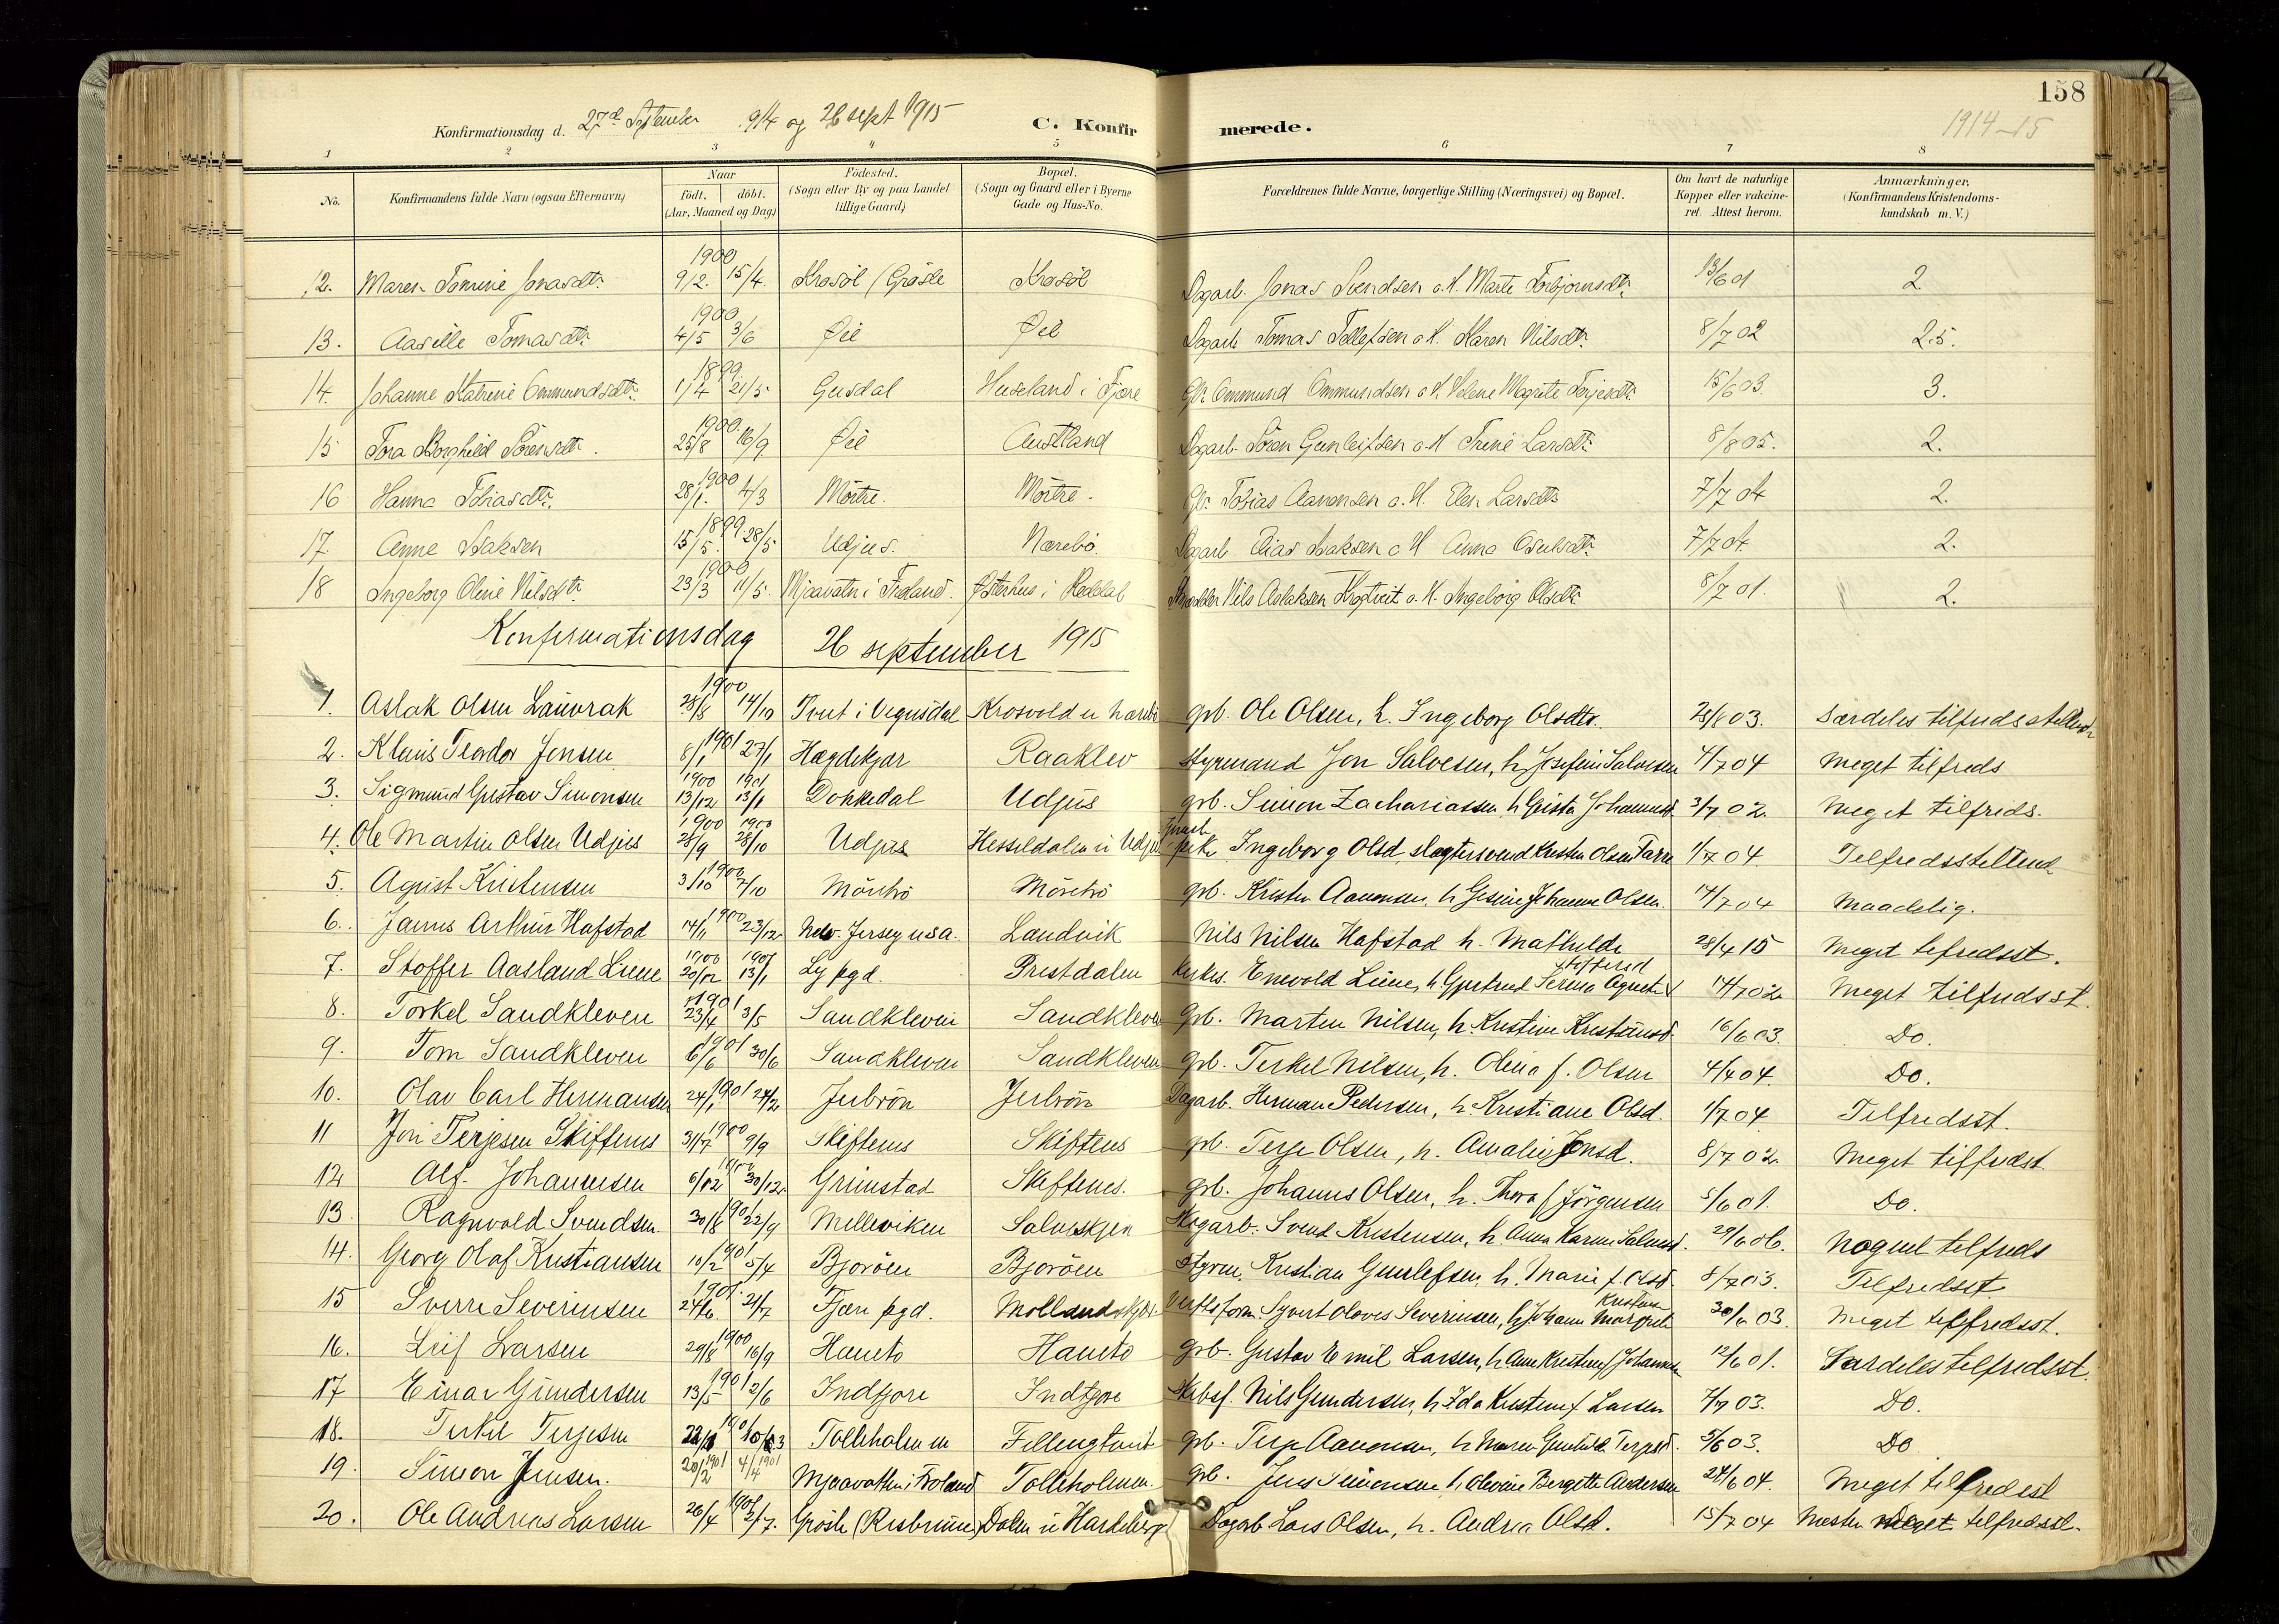 158
Konfirmationsdag d. 27de September 914 og 26 sept 1915 C. Konfir merede. 1914-15
1 2 3 4 5 6 7 8
No. Konfirmandens fulde Navn (ogsaa Efternavn) Naar født. døbt. (Aar, Maaned og Dag) Fødested. (Sogn eller By og paa Landet tillige Gaard) Bopæl. (Sogn og Gaard eller i Byerne Gade og Hus-No. Forældrenes fulde Navne, borgerlige Stilling (Næringsvei) og Bopæl. Om havt de naturlige Kopper eller vakcineret. Attest herom. Anmærkninger. (Konfirmandens Kristendomskundskab m. V.)
12. Maren Tomine Jonasdtr. 1900 9/2. 15/4. Krosøl (Gjøsle Krosøl Dagarb. Jonas Svendsen o.H. Marte Torbjørnsdtr. 13/6 01 2
13. Aasille Tomasdtr. 1900 4/5 3/6 Øie Øie Dagarb. Tomas Tellefsen o.H. Maren Nilsdtr. 8/7 02 2.5.
14. Johanne Katrine Ommundsdtr. 1899 1/4 21/5 Gusdal Huseland i Fjære Gbr. Ommund Ommundsen o.H. Helene Magrete Terjesdtr. 15/6 03. 3.
15 Tora Borghild Sørensdtr. 1900. 25/8 16/9 Øie Austland Dagarb. Søren Gunleifsen o.H Trine Larsdtr. 8/8 05. 2.
16 Hanna Tobiasdtr. 1900 28/1. 4/3 Mørtre. Mørtre. Gbr. Tobias Aanonsen o.H. Elen Larsdtr. 7/7 04 2.
17. Anne Isaksen 1899. 15/5. 28/5 Udjus. Nærebø. Dagarb Elias Isaksen o H Anna Oselsdtr. 7/7 04. 2.
18 Ingeborg Oline Nilsdtr. 1900 23/3 11/5. Mjaavatn i Froland. Østerhus i Reddal Skrædder Nils Aslaksen Krogtveit o.H. Ingeborg Olsdtr. 8/7 01. 2.
Konfirmationsdag 26 september 1915
1. Aslak Olsen Lauvrak 1900 28/8 14/10 Tveit i Vegusdal Krosvold u grb. Ole Olsen, h. Ingeborg Olsdtr. 28/8 03. Særdeles tilfredsstillende
2. Teodor Jensen 1901 8/1 27/1 Hægdekjær Raaklev Styrmand Jon Salvesen, h Josefine Salvesen 4/7 04 Meget tilfreds
3. Sigmund Gustav Simonsen 1900 13/12 1901 13/1 Dokkedal Udjus grb. Simon Zachariassen h Johannesd. 3/7 02. Meget tilfreds.
4. Ole Martin Olsen Udjus 1900 28/9 1900 28/10 Udjus Hesseldalen u Udjus pike Ingeborg Olsd slagtersvend Kristen Olsen 1/7 04 Tilfredsstillend
5. Agust Kristensen 1900 3/10 7/10 Mörtrö Mörtrö grb. Kristen Aanonsen, h Gesine Johanne Olsen. 14/7 04 Maadelig.
6. James Arthur Hafstad 1900 14/1 23/12 New-Jersey usa. Landvik Nils Nilsen Hafstad h. Mathilde 28/4 15 Meget tilfredsst.
7. Stoffer Aasland Liene 1900 20/12 1901 13/1 Ly pgd. Prestdalen Kirkes. Enevold Liene, h Gjertrud Serina Agnete Stoffersd 14/7 02 Meget tilfredsst.
8. Torkel Sandkleven 1901 23/4 3/5 Sandkleven Sandkleven Grb. Marten Nilsen, h. Kristine Kristensd. 16/6 03. Do.
9. Tom Sandkleven 1901 6/6 30/6 Sandkleven Sandkleven grb. Terkel Nilsen, h. Olena f. Olsen 4/7 04. Do.
10. Olav Carl Hermansen 1901 24/1. 24/2 Jerbrön Jerbrön Dagarb. Herman Pedersen, h. Kristiane Olsd. 1/7 04 Tilfredsst.
11 Jon Terjesen Skiftenes 1900 31/7 9/9 Skiftenes Skiftenes grb. Terje Olsen, h. Amalie Jonsd. 8/7 02. Meget tilfredst
12 Alf Johannesen 1900 6/12 30/12 Grimstad Skiftenes. grb. Johannes Olsen, h. Thora f Jörgensen 5/6 01. Do.
13. Ragnvald Svendsen 1901 30/8 22/9 Melleviken Skogarb. Svend Kristensen, h. Anna Karine Salvesd. 29/6 06. Noget tilfreds
14. Georg Olaf Kristiansen 1901 10/2 5/4 Bjoröen Bjoröen Styrm. Kristian Gunlefsen, h. Marie f. Olsd. 8/7 03. Tilfredsst.
15 Sverre Severinsen 1901. 24/6. 21/7 Fjære pgd. Mollandskjær Verftsform. Syvert Oloves Severinsen, h Johanne Margrete Kristense 30/6 03. Meget tilfredsst.
16. Leif Larsen 1900 29/8 16/9 Haneto Haneto grb. Gustav Emil Larsen, h Ane Kristine f Johannesen 12/6 01. Særdeles tilfredsst.
17 Einar Gundersen 1901 13/5 2/6 Indtjore Indtjore Skibsf. Nils Gundersen, h Ida Kristine f Larsen 7/7 03. Do.
18. Terkel Terjesen 1901 10/3 Tolleholmen Fellengtveit grb. Terje Aanonsen, h Maren Gunhild Terjesd. 5/6 03. Do
19. Simon Jensen. 1901 20/2 1901 4/4 Mjaavatten i Froland Tolleholmen. grb. Jens Simonsen h Olevine Bergitte Andersen 24/6 04. Meget tilfredsst
20. Ole Andreas Larsen 1901 26/4 21/7. Gjøsle (Risbrunne) Dalen u Hardeberg Dagarb Lars Olsen, h. Andrea Olsd. 15/7 04 Næsten meget tilfredsst.